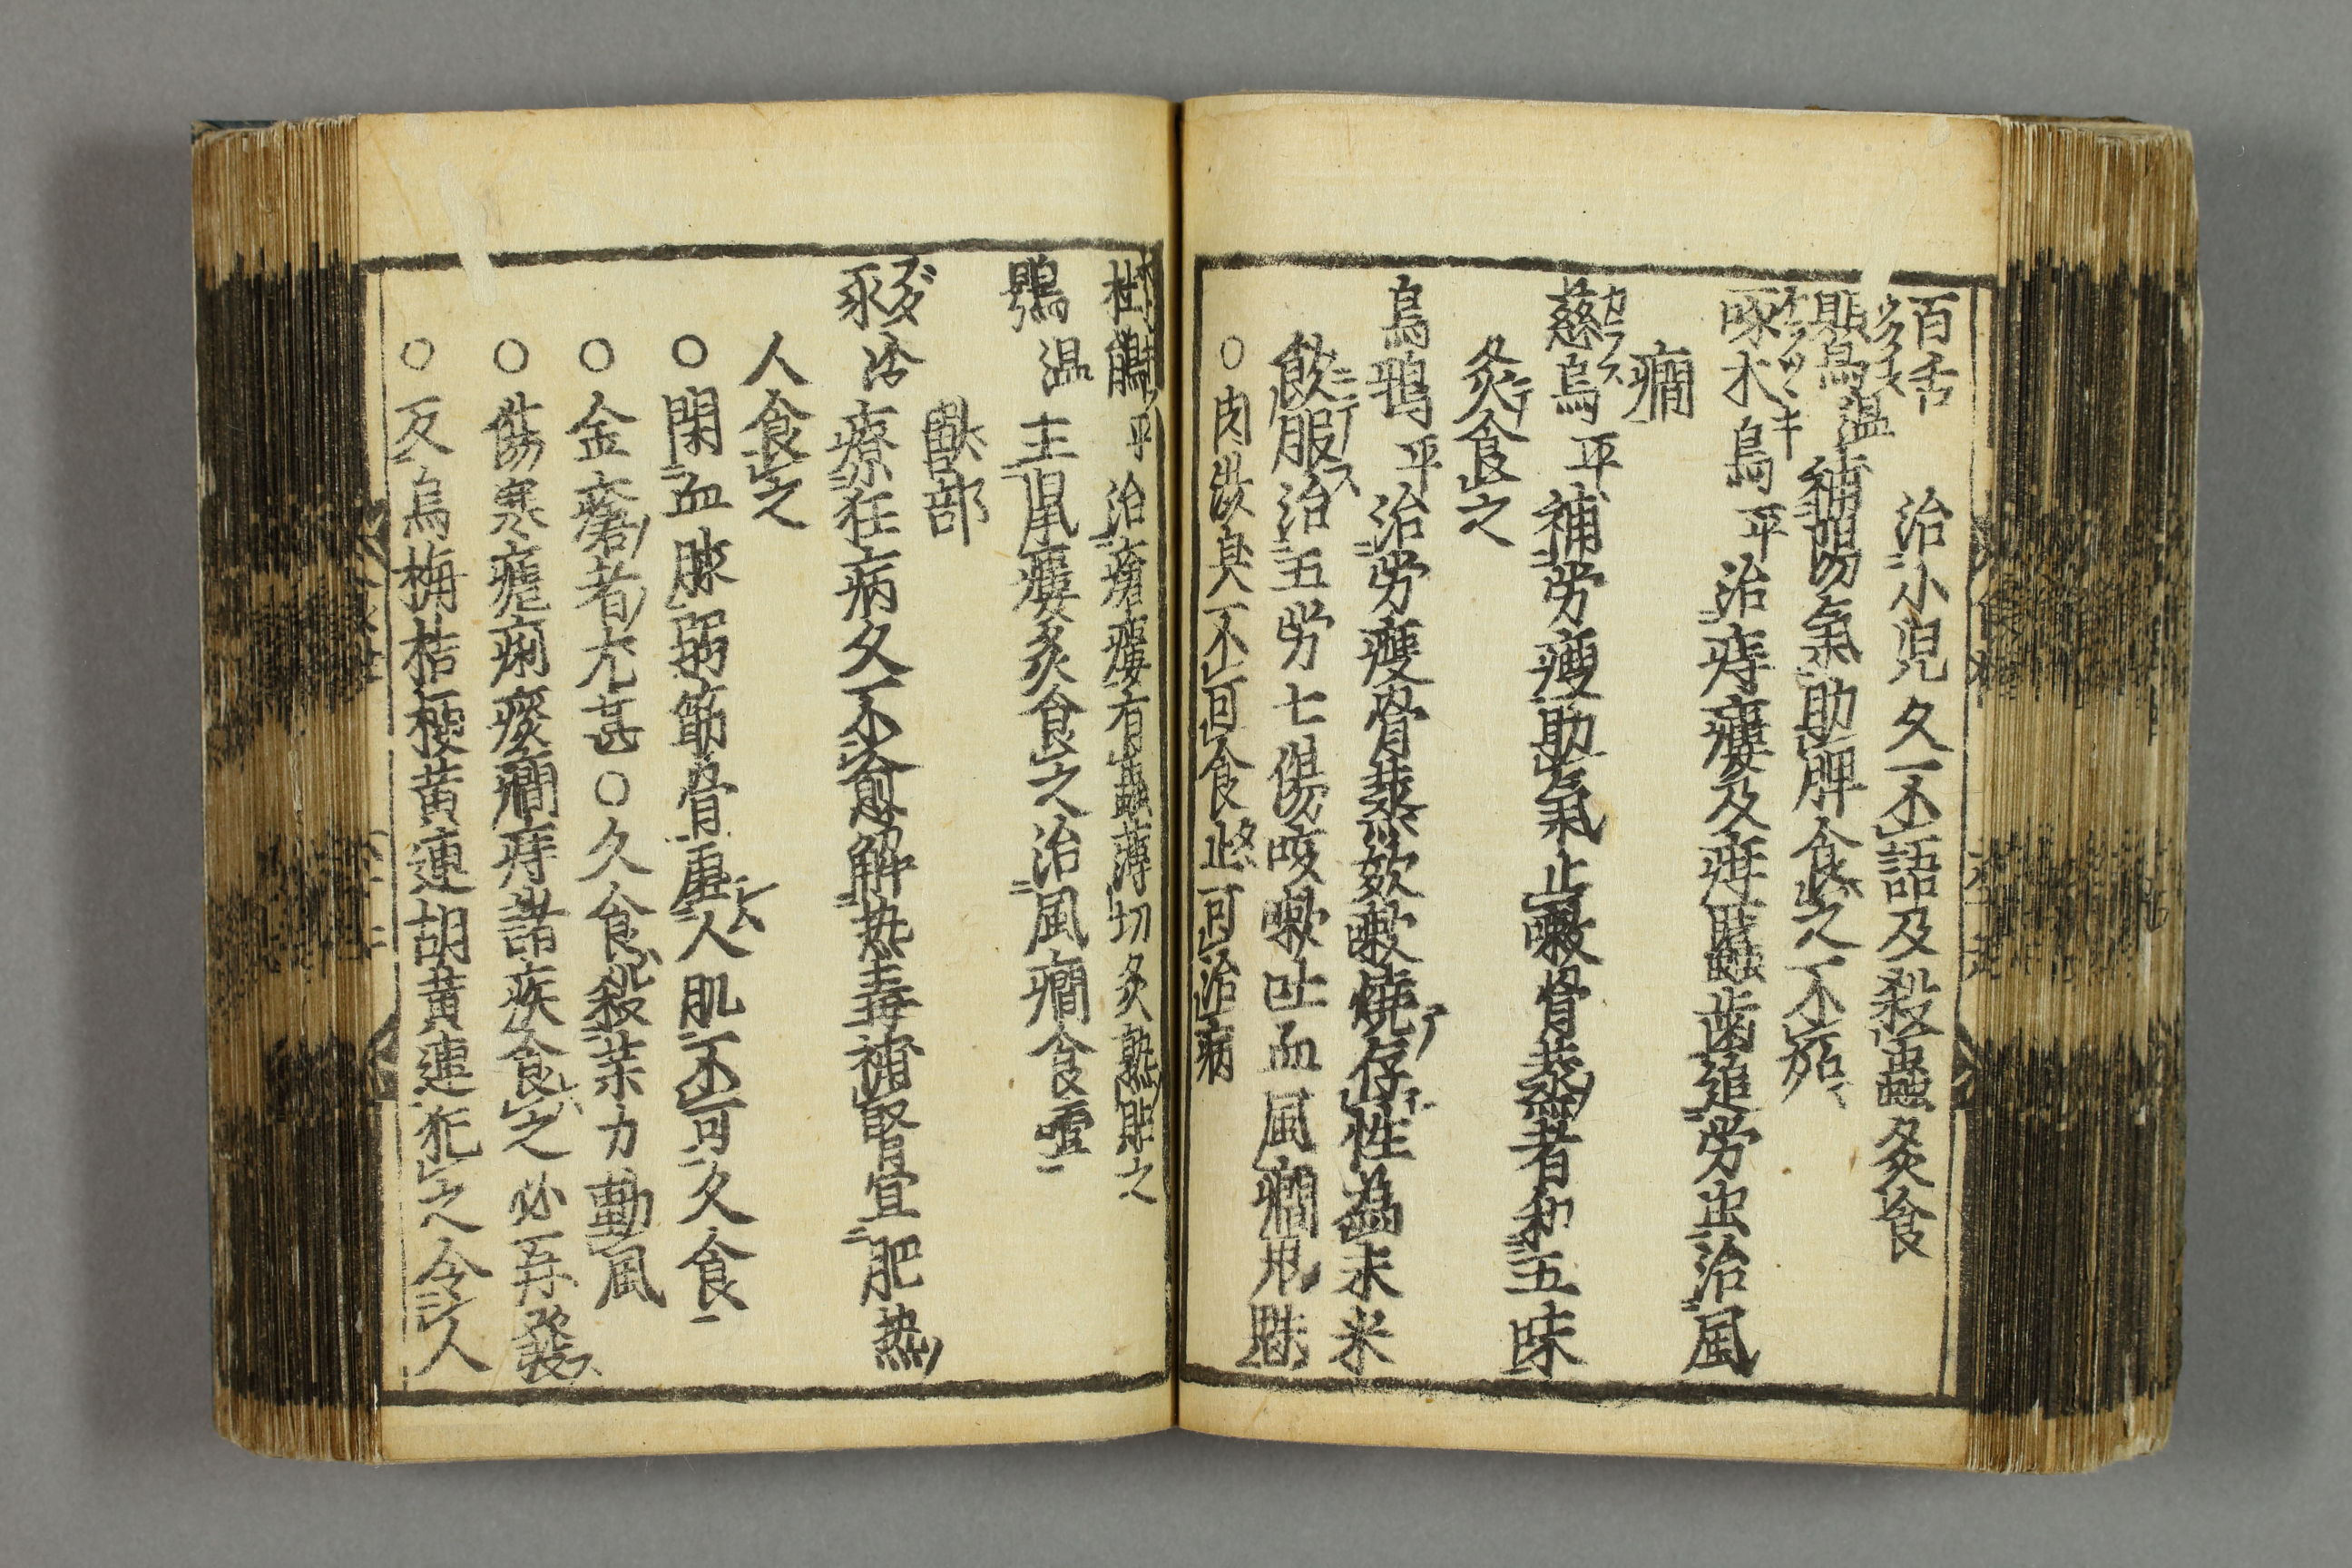 百舌 治小児久不語及殺蟲炙食
鶪鳥 温 補陽氣助脾食之不
啄木鳥 平 治痔瘻及疳䘌齒追労虫治風
癇
慈烏 平 補労瘦助氣止嗽骨蒸者和五味
炙食之
烏鴉 平 治労瘦骨蒸欬嗽燒存性為末米
飲服治五労七傷咳嗽吐血風癇
○肉渋臭不可食止可治病
平 治瘡瘻有蟲薄切炙熟貼之
鶚 温 主鼠瘻炙食之治風癇食
獣部
豕 ブタ 冷 療狂病久不愈解热毒補腎宜肥热
人食之
○閉血脉弱筋骨虛人肌不可久食
○金瘡者尤甚○久食殺薬力動風
○傷寒瘧痢痰癇痔諸疾食之必再發
○反烏梅桔梗黄連胡黄連犯之令人